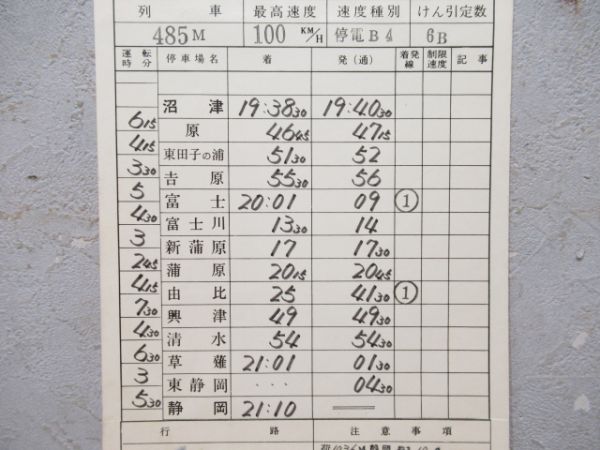 列車 最高速度 速度種別 けん引定数
485M 100 KM/H 停電B4 6B
運転時分 停車場名 着 発(通) 着発線 制限速度 記事
沼津 19:38 30 19:40 30
6 15
原 46 45 47 15
4 15
東田子の浦 51 30 52
3 30
吉原 55 30 56
5
富士 20:01 09 ①
4 30
富士川 13 30 14
3
新蒲原 17 17 30
2 45
蒲原 20 15 20 45
4 15
由比 25 41 30 ①
7 30
興津 49 49 30
4 30
清水 54 54 30
6 30
草薙 21:01 01 30
3
東静岡 ... 04 30
5 30
静岡 21:10
行路 注意事項